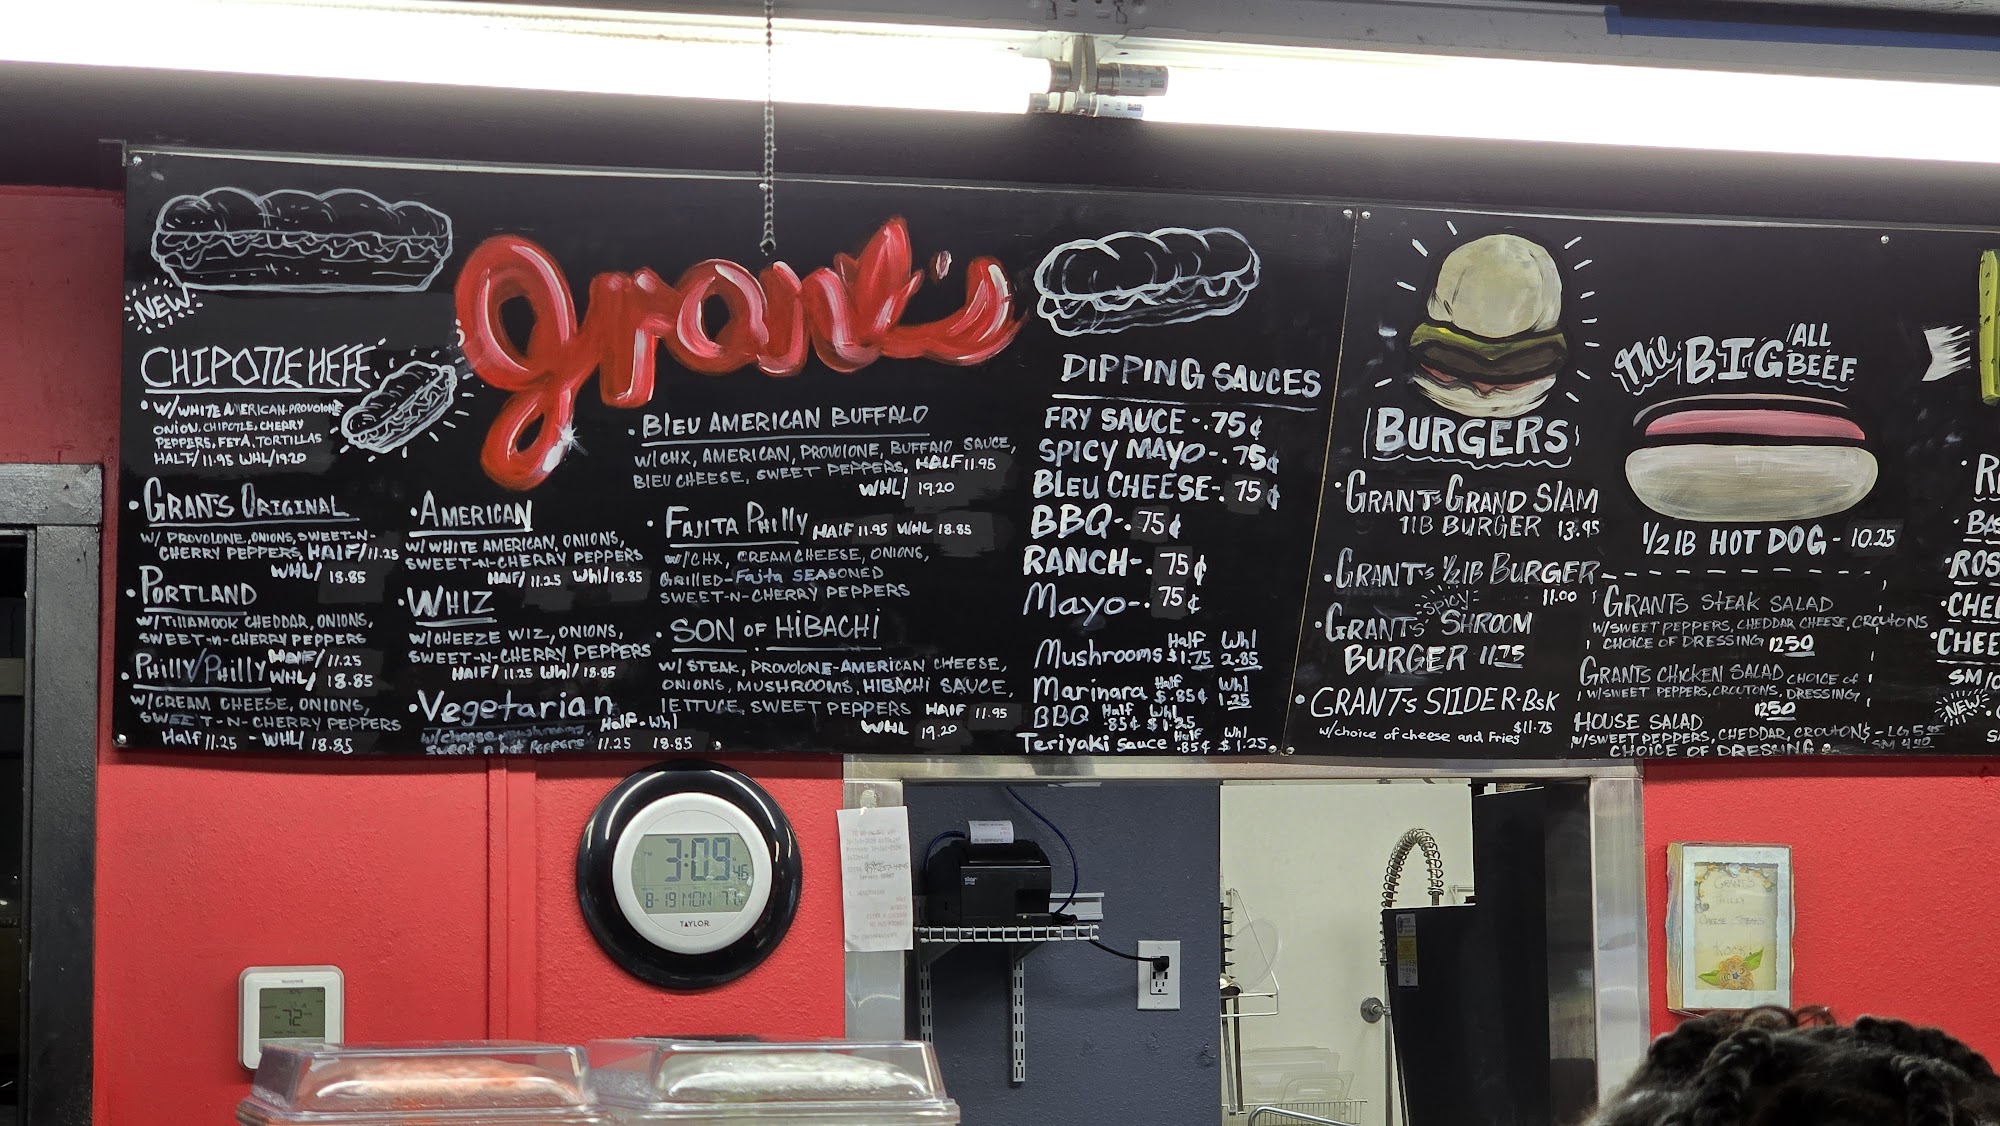 grant's
NEW
CHIPOTLE HEFE
• W/WHITE AMERICAN-PROVOLONE
ONION, CHIPOTLE, CHERRY
PEPPERS, FETA, TORTILLAS
HALF/11.95 WHL/19.20
• GRANT'S ORIGINAL
W/ PROVOLONE, ONIONS, SWEET-N-
CHERRY PEPPERS, HALF/11.25
WHL/ 18.85
• PORTLAND
W/TILLAMOOK CHEDDAR, ONIONS,
SWEET-N-CHERRY PEPPERS
HALF/11.25
• PHILLY/PHILLY WHL/ 18.85
W/CREAM CHEESE, ONIONS,
SWEET-N-CHERRY PEPPERS
Half 11.25 - WHL/ 18.85
• AMERICAN
W/WHITE AMERICAN, ONIONS,
SWEET-N-CHERRY PEPPERS
HALF/ 11.25 Whl/18.85
• WHIZ
W/CHEEZE WIZ, ONIONS,
SWEET-N-CHERRY PEPPERS
HALF/ 11.25 Whl/ 18.85
• Vegetarian
w/cheese, mushrooms, Half - Whl
sweet n hot Peppers 11.25 18.85
• BLEU AMERICAN BUFFALO
W/CHX, AMERICAN, PROVOLONE, BUFFALO SAUCE,
BLEU CHEESE, SWEET PEPPERS, HALF 11.95
WHL/ 19.20
• FAJITA PHILLY HALF 11.95 WHL 18.85
W/CHX, CREAM CHEESE, ONIONS,
GRILLED-Fajita SEASONED
SWEET-N-CHERRY PEPPERS
• SON OF HIBACHI
W/STEAK, PROVOLONE-AMERICAN CHEESE,
ONIONS, MUSHROOMS, HIBACHI SAUCE,
LETTUCE, SWEET PEPPERS HALF 11.95
WHL 19.20
DIPPING SAUCES
FRY SAUCE -.75¢
SPICY MAYO -.75¢
BLEU CHEESE-.75¢
BBQ-.75¢
RANCH-.75¢
Mayo-.75¢
Half Whl
Mushrooms $1.75 2.85
Half Whl
Marinara $.85¢ 1.25
Half Whl
BBQ .85¢ $1.25
Half Whl
Teriyaki Sauce .85¢ $1.25
BURGERS
• GRANT'S GRAND SLAM
1LB BURGER 13.95
• GRANT'S 1/2LB BURGER
11.00
SPICY
• GRANT'S SHROOM
BURGER 11.75
• GRANT'S SLIDER-BSK
w/choice of cheese and Fries $11.75
The BIG ALL
BEEF
1/2LB HOT DOG - 10.25
GRANT'S STEAK SALAD
W/SWEET PEPPERS, CHEDDAR CHEESE, CROUTONS
CHOICE OF DRESSING 12.50
GRANT'S CHICKEN SALAD CHOICE of
W/SWEET PEPPERS, CROUTONS, DRESSING
12.50
HOUSE SALAD
W/SWEET PEPPERS, CHEDDAR, CROUTONS - LG 5.95
CHOICE OF DRESSING SM 4.90
NEW
3:09 46
8-19 MON
TAYLOR
Honeywell
72
star
GRANT'S
PHILLY
CHEESE STEAKS
ROCK!